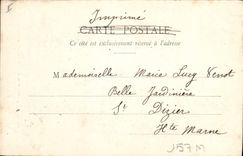 Imprimé
CARTE POSTALE
Ce côté est exclusivement réservé à l'adresse
Mademoiselle Marie Lucy
Belle Jardinière
St Dizier
Hte Marne